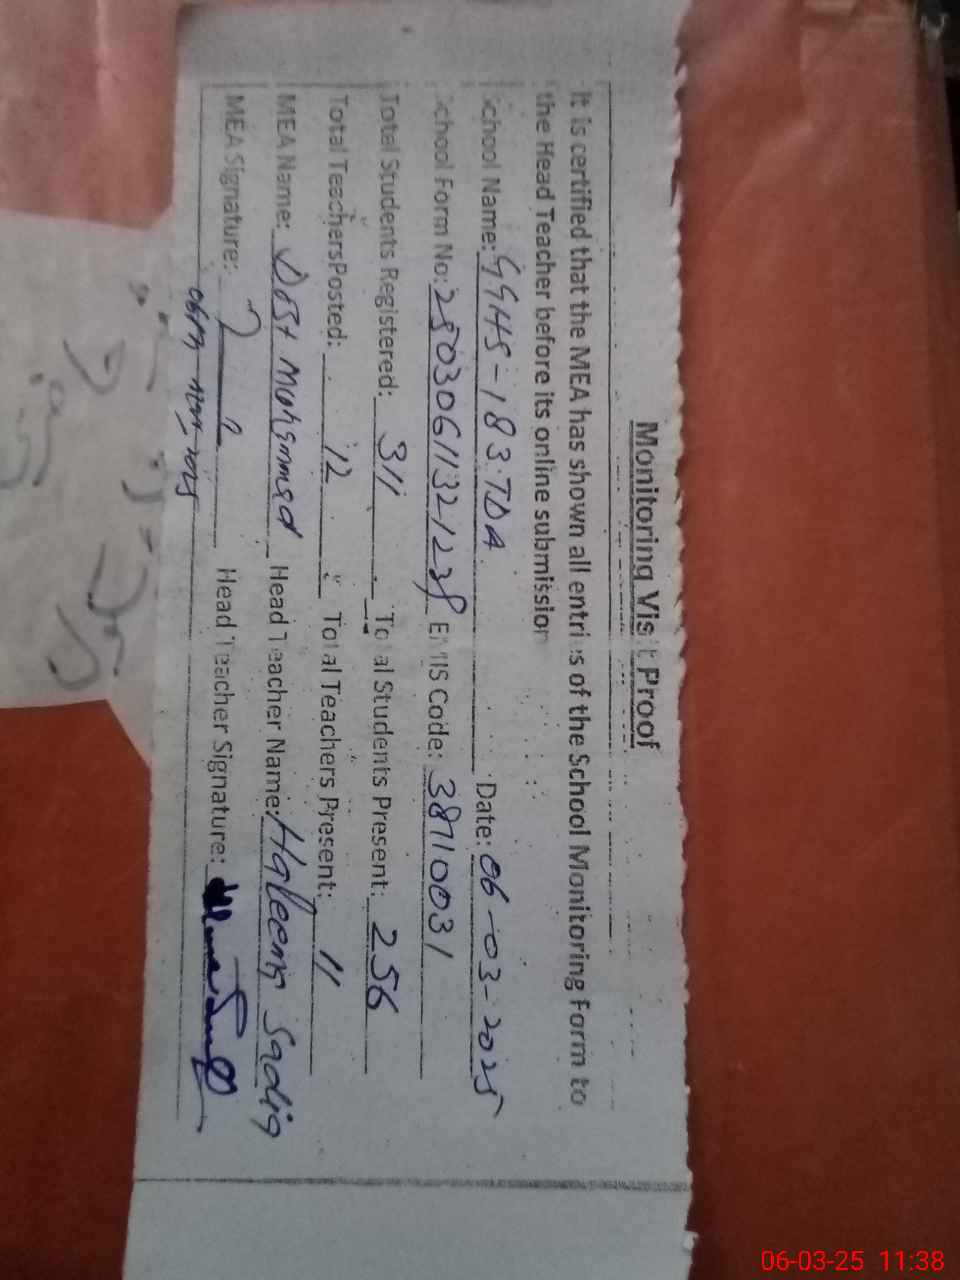 Monitoring Visit Proof
It is certified that the MEA has shown all entries of the School Monitoring Form to
the Head Teacher before its online submission
School Name: GGHS-183.TDA Date: 06-03-2025
School Form No: EMIS Code: 38710031
Total Students Registered: 311 Total Students Present: 256
Total TeachersPosted: 12 Total Teachers Present: 11
MEA Name: Dost Muhammad Head Teacher Name: Haleema Sadia
MEA Signature: Head Teacher Signature:
06-03-25 11:38